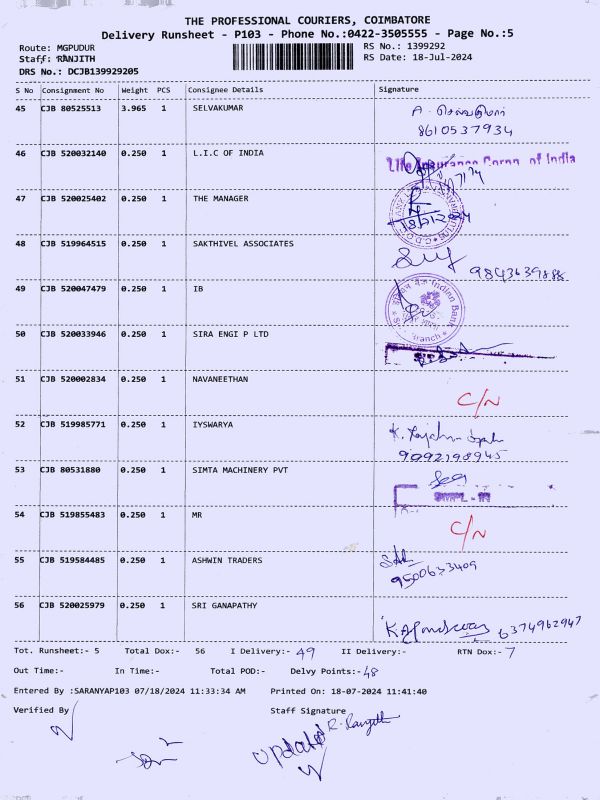 THE PROFESSIONAL COURIERS, COIMBATORE
Delivery Runsheet - P103 - Phone No.:0422-3505555 - Page No.:5
Route: MGPUDUR
RS No.: 1399292
Staff: RANJITH
RS Date: 18-Jul-2024
DRS No.: DCJB139929205
S No Consignment No Weight PCS Consignee Details Signature
45 CJB 80525513 3.965 1 SELVAKUMAR
8610537934
46 CJB 520032140 0.250 1 L.I.C OF INDIA Life Insurance Corpn. of India
47 CJB 520025402 0.250 1 THE MANAGER
48 CJB 519964515 0.250 1 SAKTHIVEL ASSOCIATES
49 CJB 520047479 0.250 1 IB Indian Bank
50 CJB 520033946 0.250 1 SIRA ENGI P LTD
51 CJB 520002834 0.250 1 NAVANEETHAN C/N
52 CJB 519985771 0.250 1 IYSWARYA
9092198945
53 CJB 80531880 0.250 1 SIMTA MACHINERY PVT
54 CJB 519855483 0.250 1 MR C/N
55 CJB 519584485 0.250 1 ASHWIN TRADERS
9500633409
56 CJB 520025979 0.250 1 SRI GANAPATHY 6374962947
Tot. Runsheet:- 5 Total Dox:- 56 I Delivery:- 49 II Delivery:- RTN Dox:- 7
Out Time:- In Time:- Total POD:- Delvy Points:- 48
Entered By :SARANYAP103 07/18/2024 11:33:34 AM Printed On: 18-07-2024 11:41:40
Verified By Staff Signature
R. Ranjith
updated